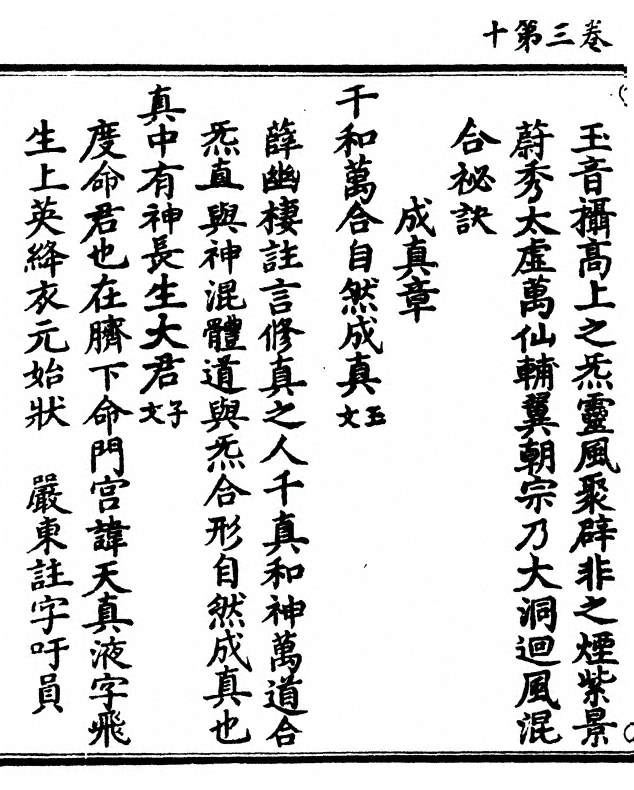 卷三第十
玉音攝高上之炁靈風聚辟非之煙紫景
蔚秀太虛萬仙輔翼朝宗乃大洞迴風混
合祕訣
成真章
千和萬合自然成真五文
薛幽棲註言修真之人千真和神萬道合
炁真與神混體道與炁合形自然成真也
真中有神長生大君子文
度命君也在臍下命門宮諱天真液字飛
生上英絳衣元始狀 嚴東註字吁員